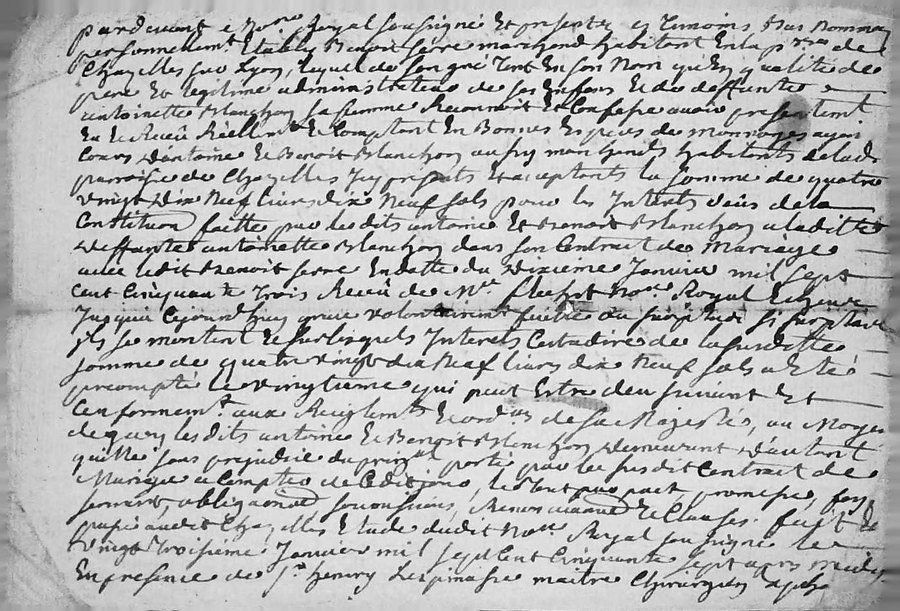 pardevant le Nore Royal soussigné Et presents les Temoins bas Nommés
personnellemt Etably Benoit serre marchand habitant En la pxxx de
Chazelles sur Lyon, lequel de son gré Tant En son Nom qu'En qualité de
pere Et legitime administrateur de ses Enfans Et de deffunte
antoinette Blanchon sa femme Reconnoit Et Confesse avoir presentemt
Eu Et Receu Reellemt Et Comptant En Bonnes Especes de monnoyes ayant
Cours d'antoine Et Benoit Blanchon aussy marchands habitants de lad
parroisse de Chazelles Icy presents Et acceptants la somme de quatre
vingt dix Neuf livres dix Neuf sols pour les Interets de la
Constitution faitte par lesdits antoine Et Benoit Blanchon a laditte
deffunte antoinette Blanchon dans son Contrat de Mariage
avec ledit Benoit serre En datte du dixieme Janvier mil sept
cent Cinquante trois Receu de Me Nore Royal
Jusqu'a Cejourd'huy
ils se montent Et sur lesquels Interets Cestadire de la susditte
somme de quatre vingt dix Neuf livres dix Neuf sols a Eté
precompté le vingtieme qui peut Estre deu suivant Et
Conformemt aux Reiglemts Et ordres de sa Majesté, au Moyen
de quoy lesdits antoine Et Benoit Blanchon demeurent d'autant
quitte sans prejudice du prinpal porté par le susdit Contrat de
Mariage a Compte de Ceditjour, le tout par pact, promesse, foy
serment, obligation, soumissions, Renonciation Et Clauses. fait Et
passé audit Chazelles Etude dudit Nore Royal soussigné le
vingt troisieme Janvier mil sept cent Cinquante sept apres midy
En presence de Sr henry Lespinasse maitre Chirurgien